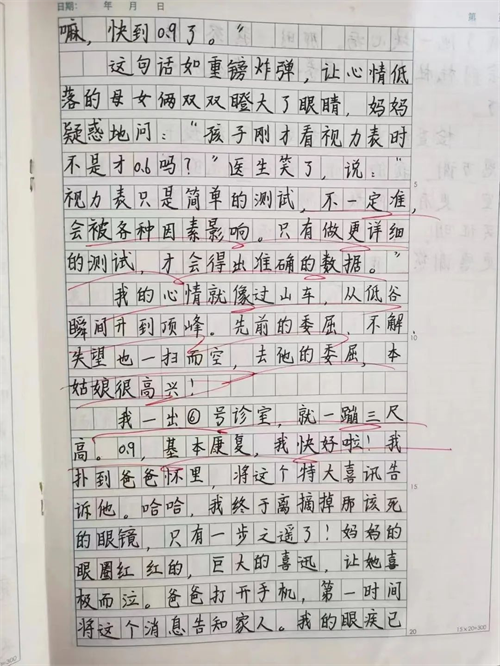 日期: 年 月 日
第
嘛，快到0.9了。"
这句话如重镑炸弹，让心情低
落的母女俩双双瞪大了眼睛，妈妈
疑惑地问："孩子刚才看视力表时
不是才0.6吗？"医生笑了，说："
视力表只是简单的测试，不一定准，
会被各种因素影响。只有做更详细
的测试，才会得出准确的数据。"
我的心情就像过山车，从低谷
瞬间升到顶峰。先前的委屈、不解、
失望也一扫而空，去他的委屈，本
姑娘很高兴！
我一出⑥号诊室，就一蹦三尺
高。0.9，基本康复，我快好啦！我
扑到爸爸怀里，将这个特大喜讯告
诉他。哈哈，我终于离摘掉那该死
的眼镜，只有一步之遥了！妈妈的
眼圈红红的，巨大的喜迅，让她喜
极而泣。爸爸打开手机，第一时间
将这个消息告知家人。我的眼疾已
5
10
15
20
15×20=300